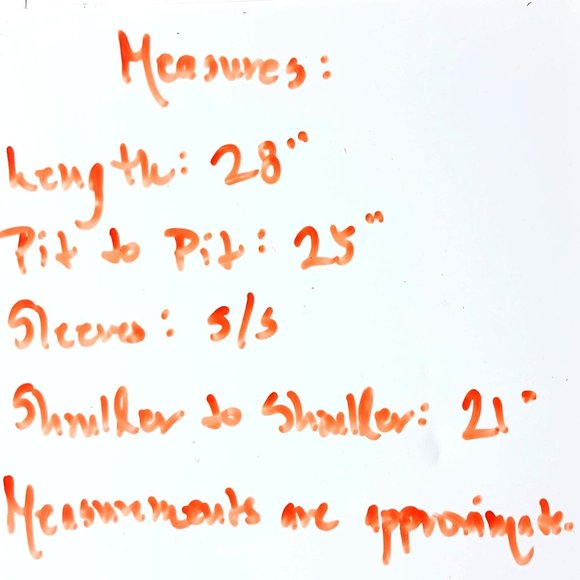 Measures:
Length: 28"
Pit to Pit: 25"
Sleeves: s/s
Shoulder to Shoulder: 21"
Measurements are approximate.